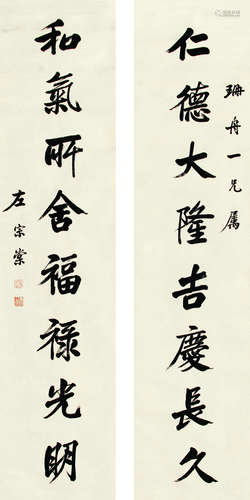 仁德大隆吉慶長久
珊舟一兄屬
和氣所舍福祿光明
左宗棠